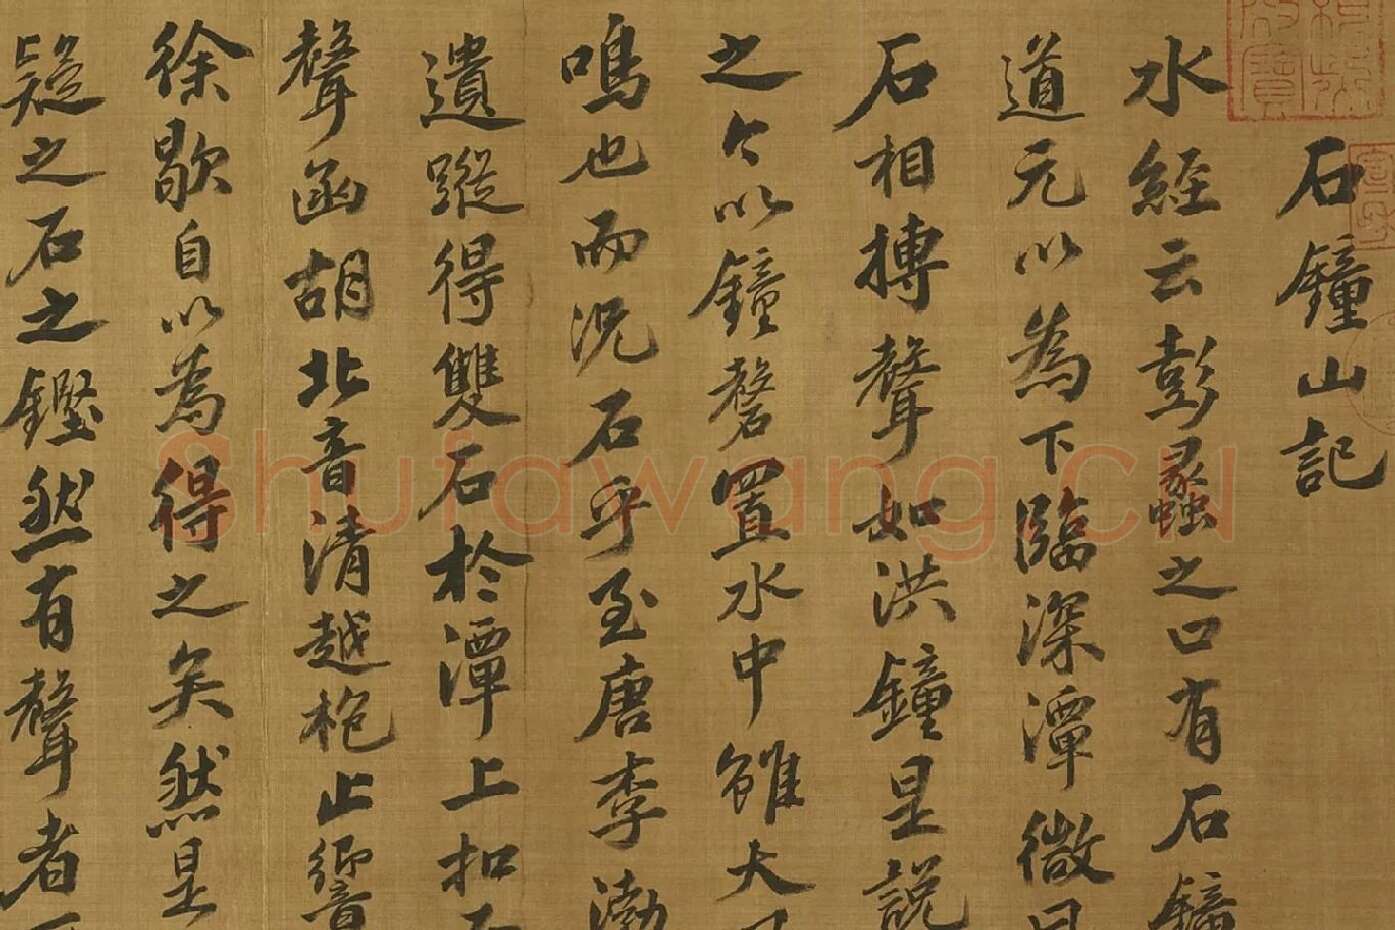 石鐘山記
水經云彭蠡之口有石鐘
道元以為下臨深潭微
石相搏聲如洪鐘是說
之今以鐘磬置水中雖大
鳴也而況石乎至唐李渤
遺蹤得雙石於潭上扣
聲函胡北音清越枹止響
徐歇自以為得之矣然是
疑之石之鏗然有聲者
Shufawang.CN